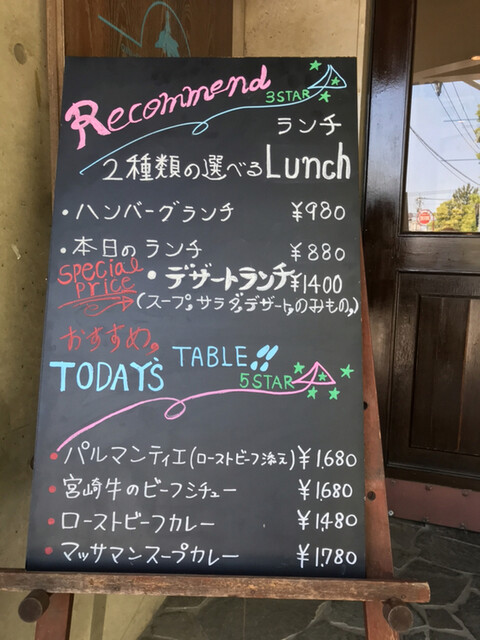 Recommend
3STAR
ランチ
2種類の選べるLunch
・ハンバーグランチ ¥980
・本日のランチ ¥880
special price
・デザートランチ ¥1400
(スープ。サラダ。デザート。のみもの。)
おすすめ。
TODAY'S TABLE!!
5STAR
・パルマンティエ(ローストビーフ添え) ¥1,680
・宮崎牛のビーフシチュー ¥1680
・ローストビーフカレー ¥1,480
・マッサマンスープカレー ¥1,780